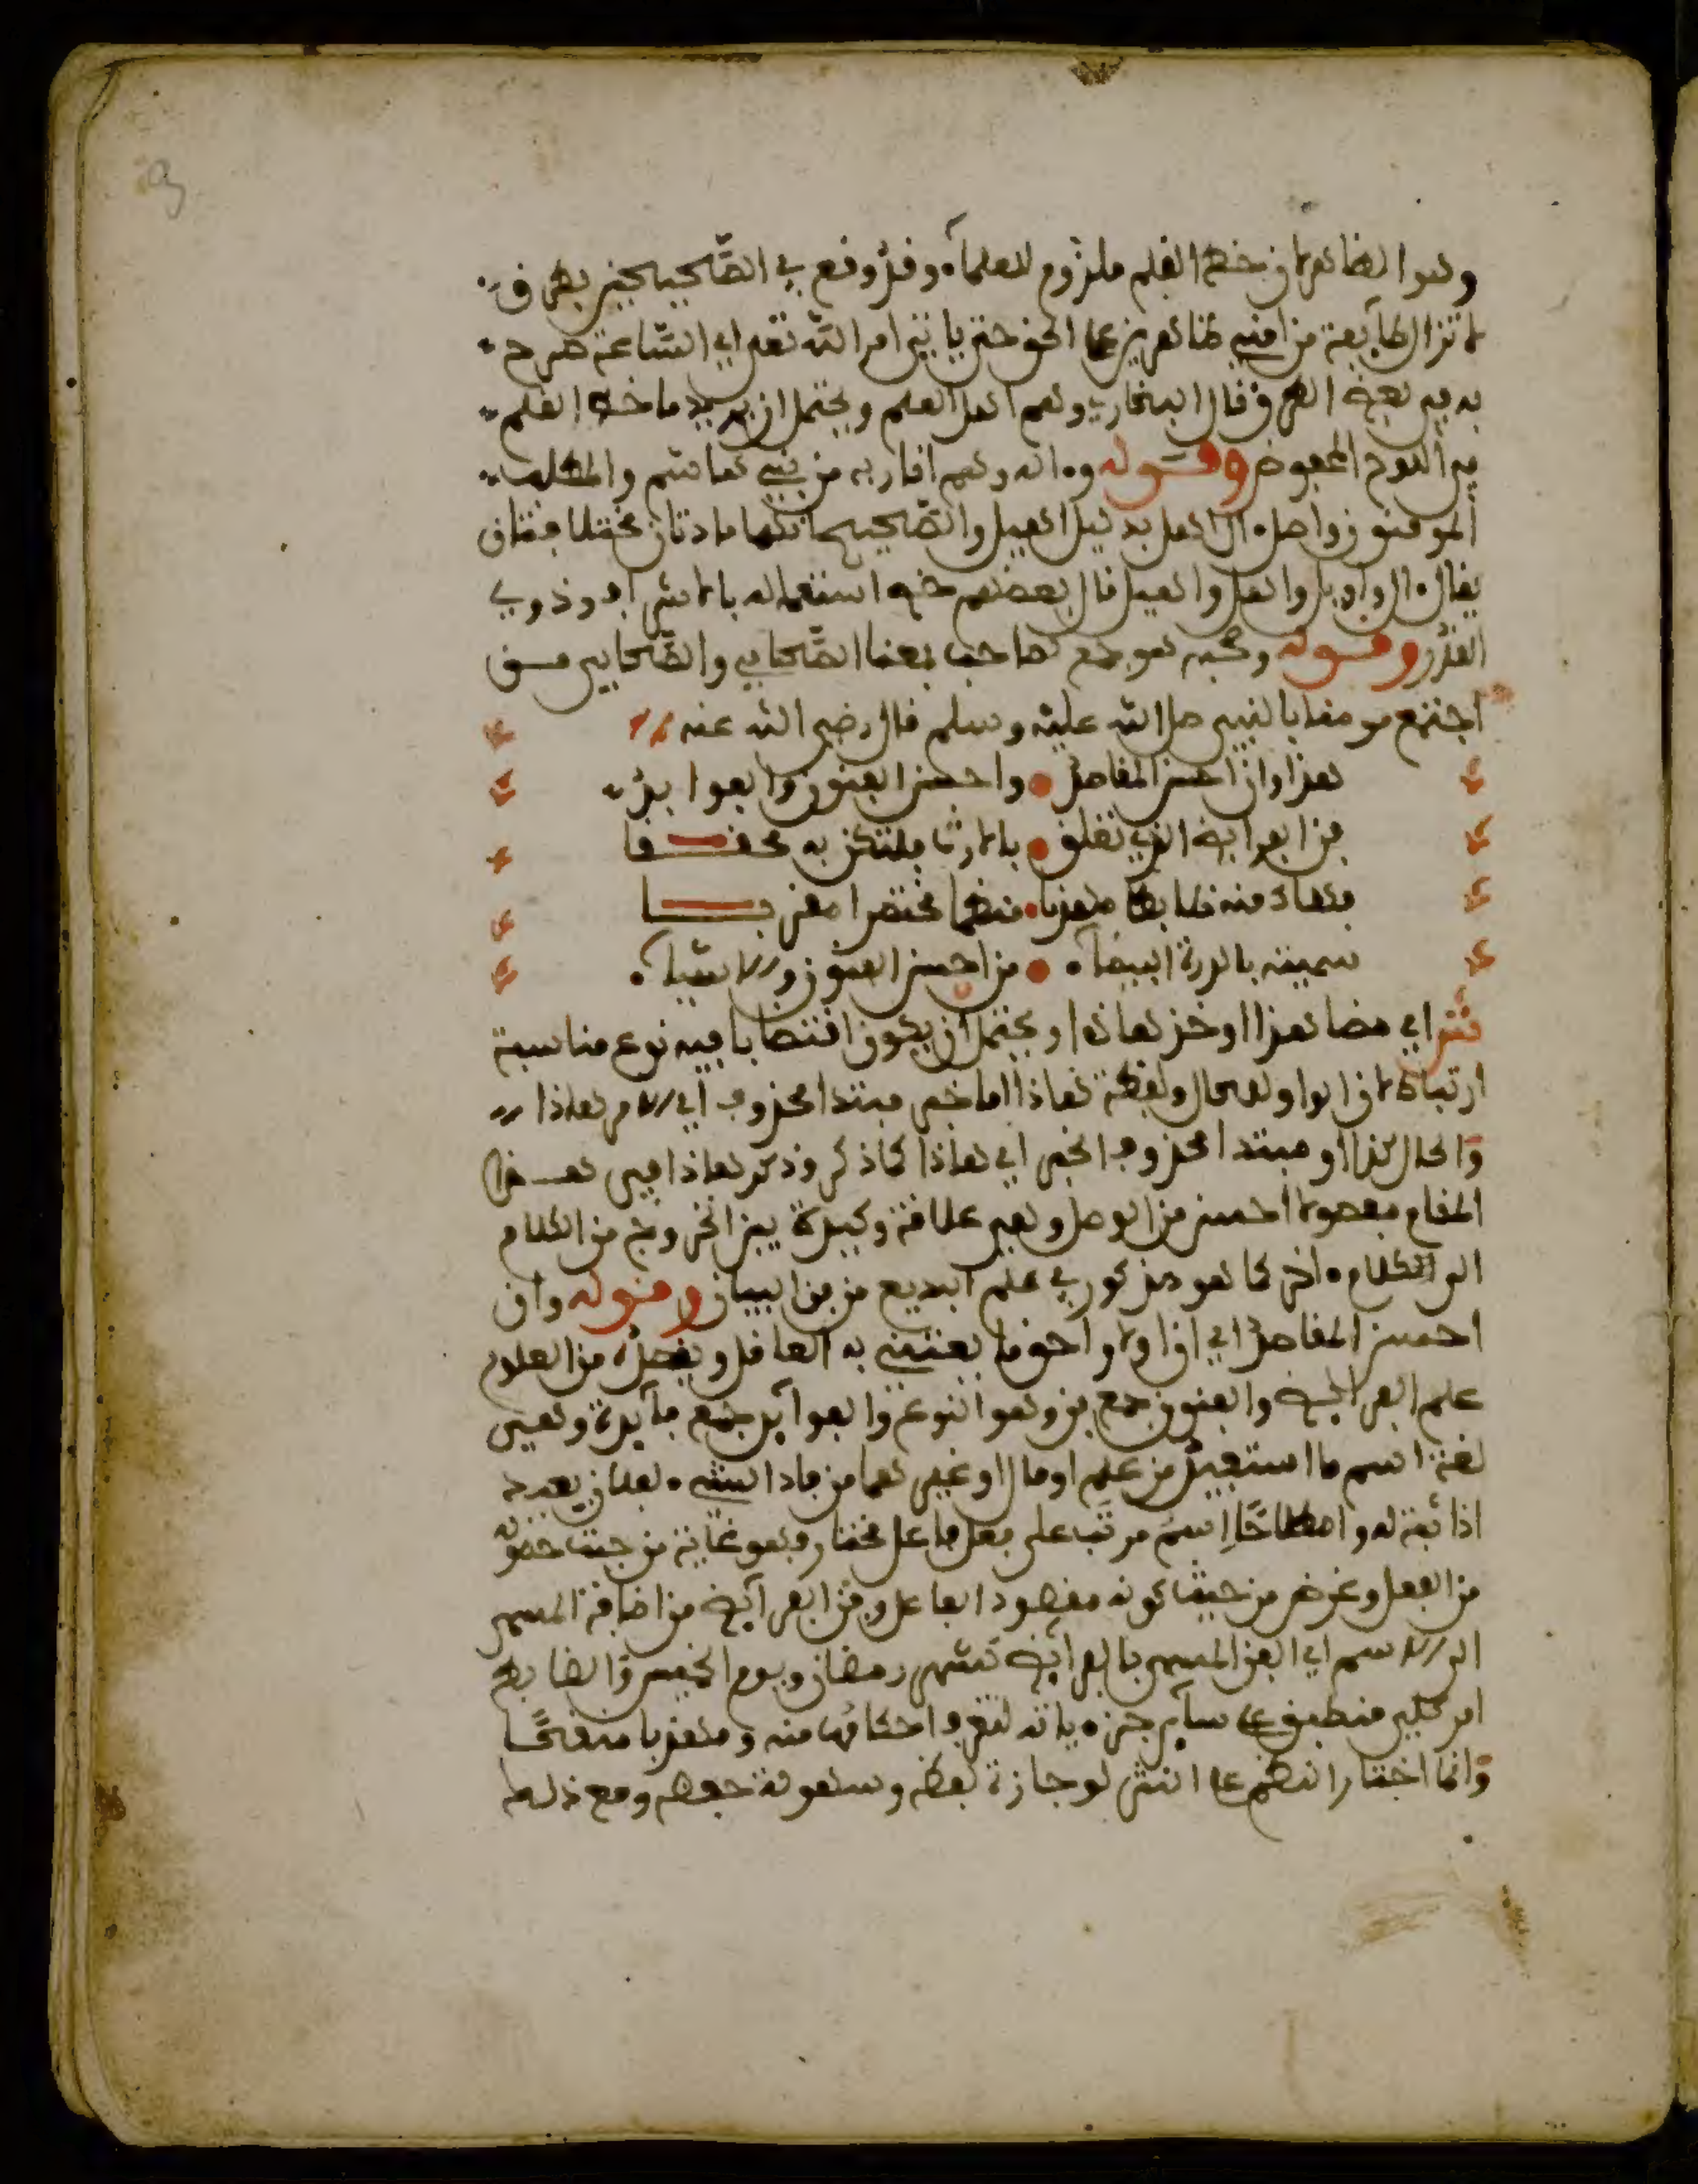 وهو الظاهر لان خط القلم ملزوم للعلماء وقد وقع في الصحيحين بطرق
لا تزال طايفة من امتي ظاهرين على الحق حتى ياتي امر الله تعلى اي الساعة صرح
به في بعض الطرق قال البخاري وهم اهل العلم ويحتمل ان يريد ما خط القلم
في اللوح المحفوظ وقوله وءاله وهم اقاربه من بني هاشم والمطلب
المومنون واصل ءال اهل بدليل اهيل والصحيح انهما مادتان مختلفتان
يقال ءال واويل واهل واهيل قال بعضهم خص استعماله بالاشراف وذوي
القدر وقوله وصحبه هو جمع صاحب بمعنا الصحابي والصحابي من
اجتمع مومنا بالنبي صلى الله عليه وسلم قال رضي الله عنه
هذا وان احسن المقاصد واحسن الفنون والفوايد
فن الفرايض الذي تعلق بالارث فلتكن به محققا
فهاك منه ضابطا مهذبا منظما مختصرا مقربا
سميته بالدرة البيضاء من احسن الفنون والاشياء
ش اي مضا هذا او خذ هاذا ويحتمل ان يكون اقتضابا فيه نوع مناسبة
ارتباط لان الواو للحال ولفظة هاذا اما خبر مبتدا محذوف اي الامر هاذا
والحال كذا او مبتدا محذوف الخبر اي هاذا كما ذكر وذكر هاذا في هذا
المقام مفصولا احسن من الوصل وهي علاقة وكيدة بين الخروج من الكلام
الى الكلام ءاخر كما هو مذكور في علم البديع من فن البيان وقوله وان
احسن المقاصد اي ان اولا واحق ما يعتني به العاقل ويقصده من العلوم
علم الفرايض والفنون جمع فن وهو النوع والفوايد جمع فايدة وهي
لغة اسم ما استفيد من علم او مال او غيرهما من فاد الشيء لفلان يفيد
اذا ثبت له واصطلاحا اسم مرتب على فعل فاعل مختار فهو غاية من حيث حصوله
من الفعل وغرض من حيث كونه مقصود الفاعل وفن الفرايض من اضافة المسمى
الى الاسم اي الفن المسمى بالفرايض كشهر رمضان ويوم الخميس والضابط
امر كلي منطبق على ساير جزءياته لتعرف احكامها منه ومهذبا منقحا
وانما اختار النظم على النثر لوجازة لفظه وسهولة حفظه ومع ذلك